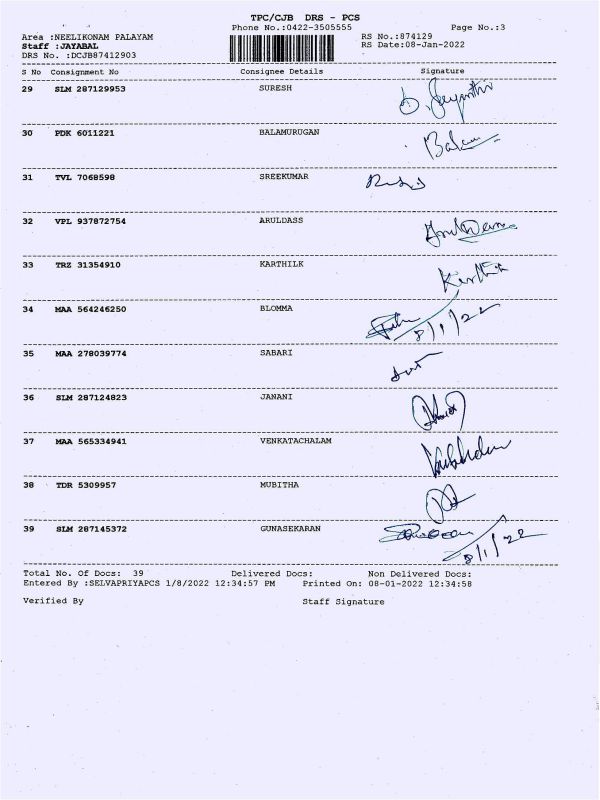 TPC/CJB DRS - PCS
Phone No.:0422-3505555 Page No.:3
Area :NEELIKONAM PALAYAM RS No.:874129
Staff :JAYABAL RS Date:08-Jan-2022
DRS No. :DCJB87412903
S No Consignment No Consignee Details Signature
29 SLM 287129953 SURESH
30 PDK 6011221 BALAMURUGAN
31 TVL 7068598 SREEKUMAR
32 VPL 937872754 ARULDASS
33 TRZ 31354910 KARTHILK
34 MAA 564246250 BLOMMA 8/1/22
35 MAA 278039774 SABARI
36 SLM 287124823 JANANI
37 MAA 565334941 VENKATACHALAM
38 TDR 5309957 MUBITHA
39 SLM 287145372 GUNASEKARAN 8/1/22
Total No. Of Docs: 39 Delivered Docs: Non Delivered Docs:
Entered By :SELVAPRIYAPCS 1/8/2022 12:34:57 PM Printed On: 08-01-2022 12:34:58
Verified By Staff Signature